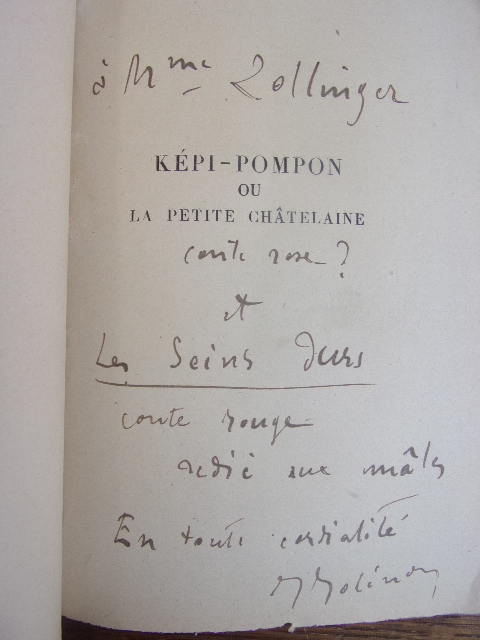 à Mme Zollinger
KÉPI-POMPON
OU
LA PETITE CHÂTELAINE
conte rose ?
et
Les Seins Durs
conte rouge
dédié aux mâles
En toute cordialité